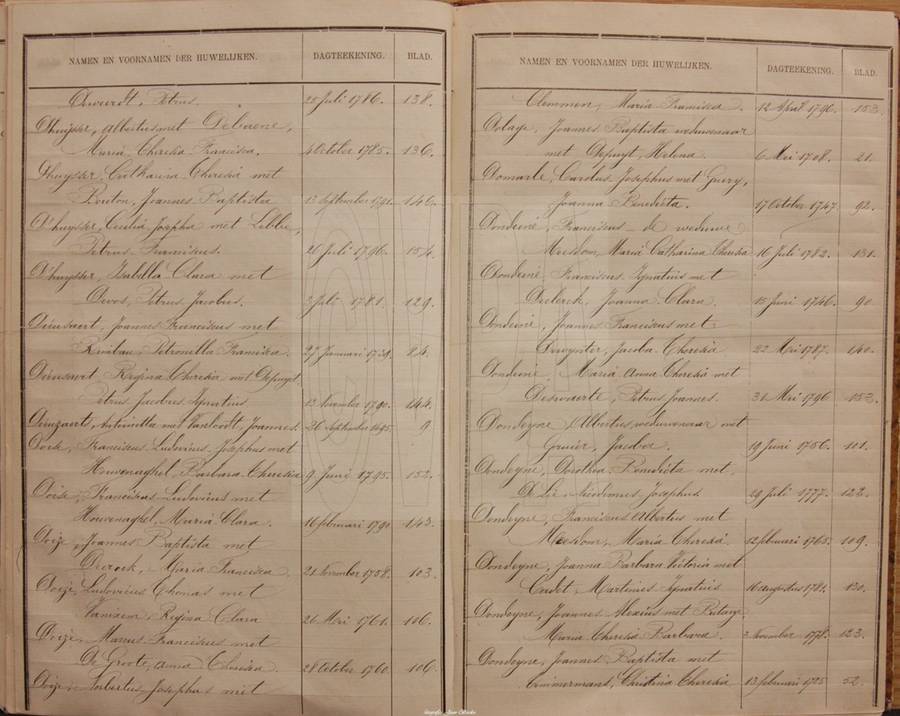 NAMEN EN VOORNAMEN DER HUWELIJKEN. DAGTEEKENING. BLAD.
Petrus. 25 Juli 1786. 138.
D'huysser, Albertus met Debaene,
Maria, Theresia Francisca. 4 October 1785. 136.
D'huysser, Catharina Theresia met
Bouton, Joannes Baptista 13 September 1791. 146.
D'huysser, Cecilia Josepha met Lebbe,
Petrus Franciscus. 26 Juli 1796. 154.
D'huysser, Isabilla Clara met
Devos, Petrus Jacobus. 3 Juli 1781. 129.
Dieusaert, Joannes Franciscus met
Rimbau, Petronilla Francisca. 27 Januari 1734. 84.
Dieusaert, Regina Theresia met Depuydt,
Petrus Jacobus Ignatius 13 November 1790. 144.
Dieuzaert, Antonetta met Joannes 26 September 1695. 9
Franciscus Ludovicus Josephus met
Houvenaghel, Barbara Theresia 9 Juni 1795. 152.
Franciscus Ludovicus met
Houvenaghel, Maria Clara. 16 februari 1790 143.
Doize, Joannes Baptista met
Maria Francisca. 21 November 1758. 103.
Doize, Ludovicus Thomas met
Regina Clara 26 Mei 1761. 106.
Doize, Franciscus met
De Groote, Anna Theresia 28 October 1760. 106.
Doize, Norbertus Josephus met
NAMEN EN VOORNAMEN DER HUWELIJKEN. DAGTEEKENING. BLAD.
Clemmen, Maria Francisca. 12 April 1796. 153.
Dolage, Joannes Baptista weduwenaar
met Depuydt, Helena. 6 Mei 1708. 21.
Domarle, Carolus Josephus met
Joanna Benedicta. 17 October 1747. 92.
Franciscus de weduwe
Meesdom, Maria Catharina Theresia 16 Juli 1782. 131.
Franciscus Ignatius met
Declerck, Joanna Clara. 15 Juni 1746. 90
Joannes Franciscus met
Jacoba Theresia 22 Mei 1787. 140.
Maria Anna Theresia met
Petrus Joannes. 31 Mei 1796 153.
Dondeyne, Albertus, weduwenaar met
Jacoba. 19 Juni 1756. 101.
Dondeyne, Dorothea Benedicta met
Josephus 29 Juli 1777. 122.
Dondeyne, Franciscus Albertus met
Meesdom, Maria Theresia 12 februari 1765. 109.
Dondeyne, Joanna Barbara Victoria met
Martinus Ignatius 16 augustus 1781. 130.
Dondeyne, Joannes Alexius met
Maria Theresia Barbara. 3 November 1778. 123.
Dondeyne, Joannes Baptista met
Timmermans, Christina Theresia 13 februari 1725 52.